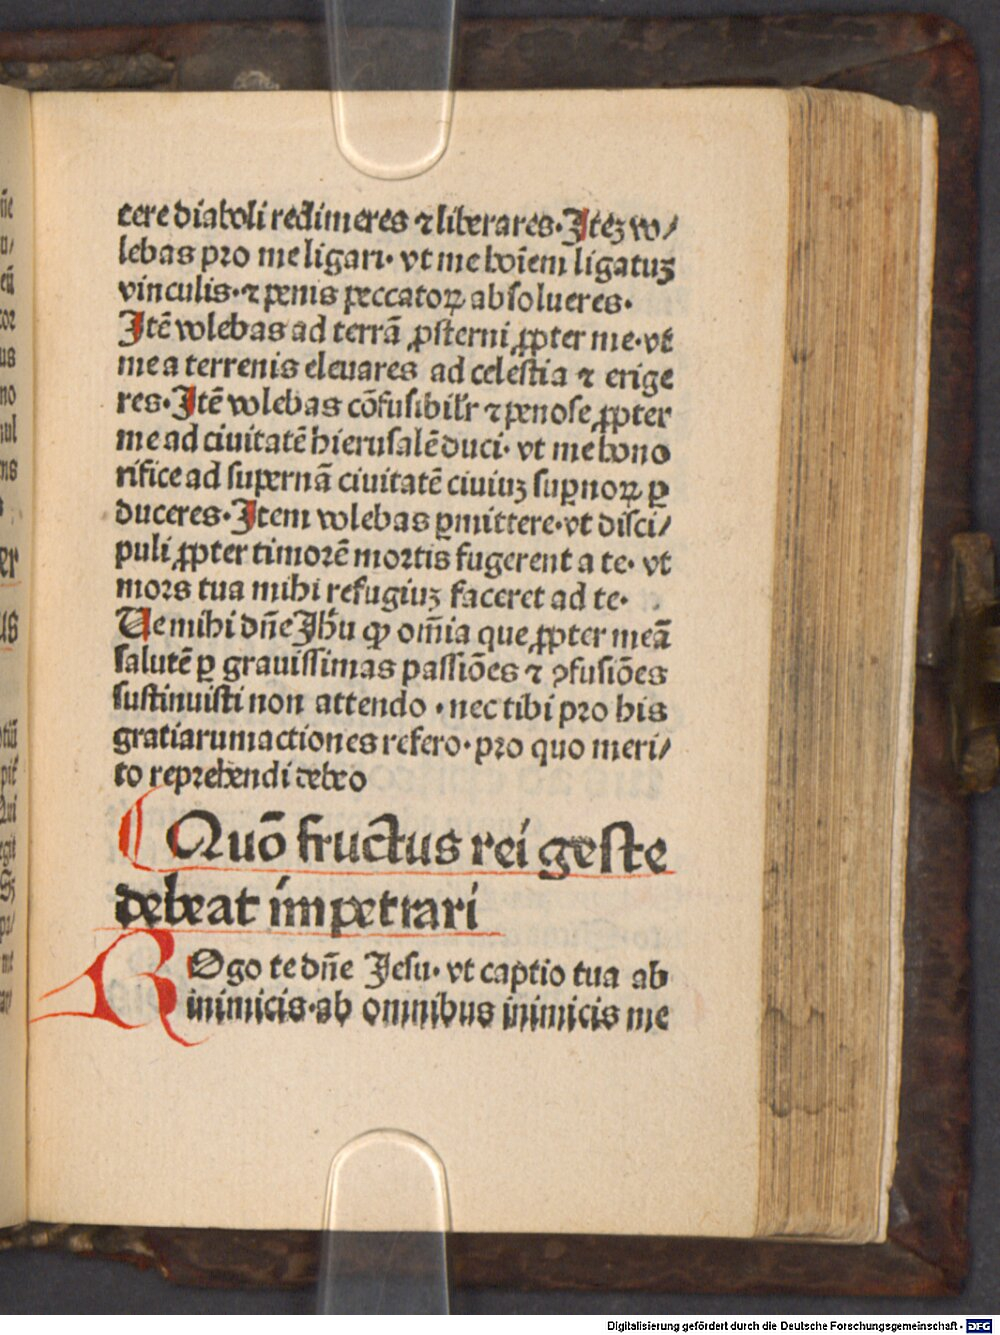 cere diaboli redimeres ⁊ liberares. Itēꝫ vo/
lebas pro me ligari. vt me hoīem ligatuꝫ
vinculis. ⁊ penis peccatoꝝ absolueres.
Itē volebas ad terrā ꝓsterni ꝓpter me. vt
me a terrenis eleuares ad celestia ⁊ erige
res. Itē volebas cōfusibilr̄ ⁊ penose ꝓpter
me ad ciuitatē hierusalē duci. vt me hono
rifice ad supernā ciuitatē ciuiuꝫ suꝑnoꝝ ꝑ
duceres. Item volebas ꝑmittere. vt disci/
puli ꝓpter timorē mortis fugerent a te. vt
mors tua mihi refugiuꝫ faceret ad te.
Ve mihi dn̄e Jhū ꝙ om̄ia que ꝓpter meā
salutē ꝑ grauissimas passiōes ⁊ ꝯfusiōes
sustinuisti non attendo. nec tibi pro his
gratiarum actiones refero. pro quo meri/
to reprehendi debeo
Quō fructus rei geste
debeat impetrari
ROgo te dn̄e Jesu. vt captio tua ab
inimicis. ab omnibus inimicis me
Digitalisierung gefördert durch die Deutsche Forschungsgemeinschaft - DFG